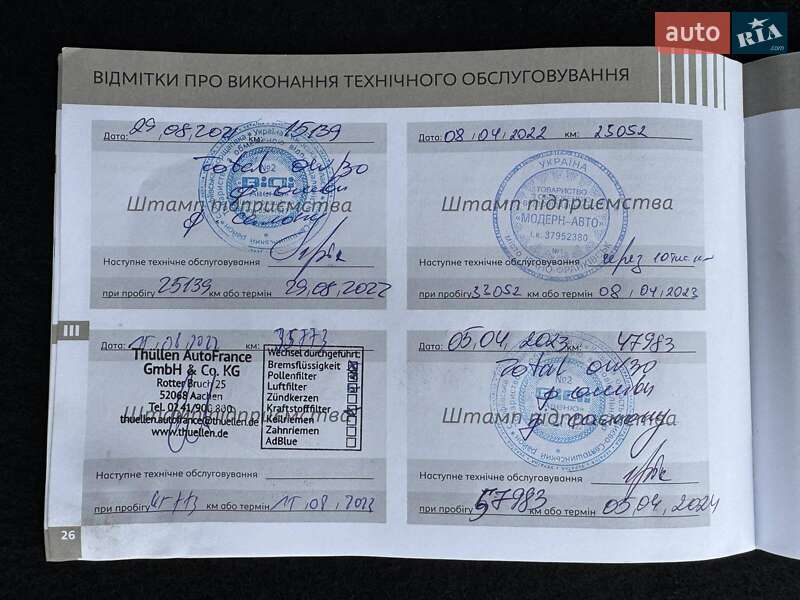 auto RIA.com
ВІДМІТКИ ПРО ВИКОНАННЯ ТЕХНІЧНОГО ОБСЛУГОВУВАННЯ
Дата: 29,08,2021 15139
Total 0W30
BiGi
№2
Штамп підприємства
Наступне технічне обслуговування
при пробігу 25139 км або термін 29,08,2022
Дата: 08,04,2022 км: 23052
УКРАЇНА
ТОВАРИСТВО
«МОДЕРН-АВТО»
і.к. 37952380
Штамп підприємства
Наступне технічне обслуговування через
при пробігу 33052 км або термін 08,04,2023
III
Дата: 11,08,2022 км: 35773
Thüllen AutoFrance
GmbH & Co. KG
Rotter Bruch 25
52068 Aachen
Tel. 0241/900 800
thuellen.autofrance@thuellen.de
www.thuellen.de
Wechsel durchgeführt:
Bremsflüssigkeit
Pollenfilter
Luftfilter
Zündkerzen
Kraftstofffilter
Keilriemen
Zahnriemen
AdBlue
Штамп підприємства
Наступне технічне обслуговування
при пробігу 45773 км або термін 11,08,2023
Дата: 05,04,2023 км: 47983
Total 0W30
№2
Штамп підприємства
Наступне технічне обслуговування
при пробігу 57983 км або термін 05,04,2024
26